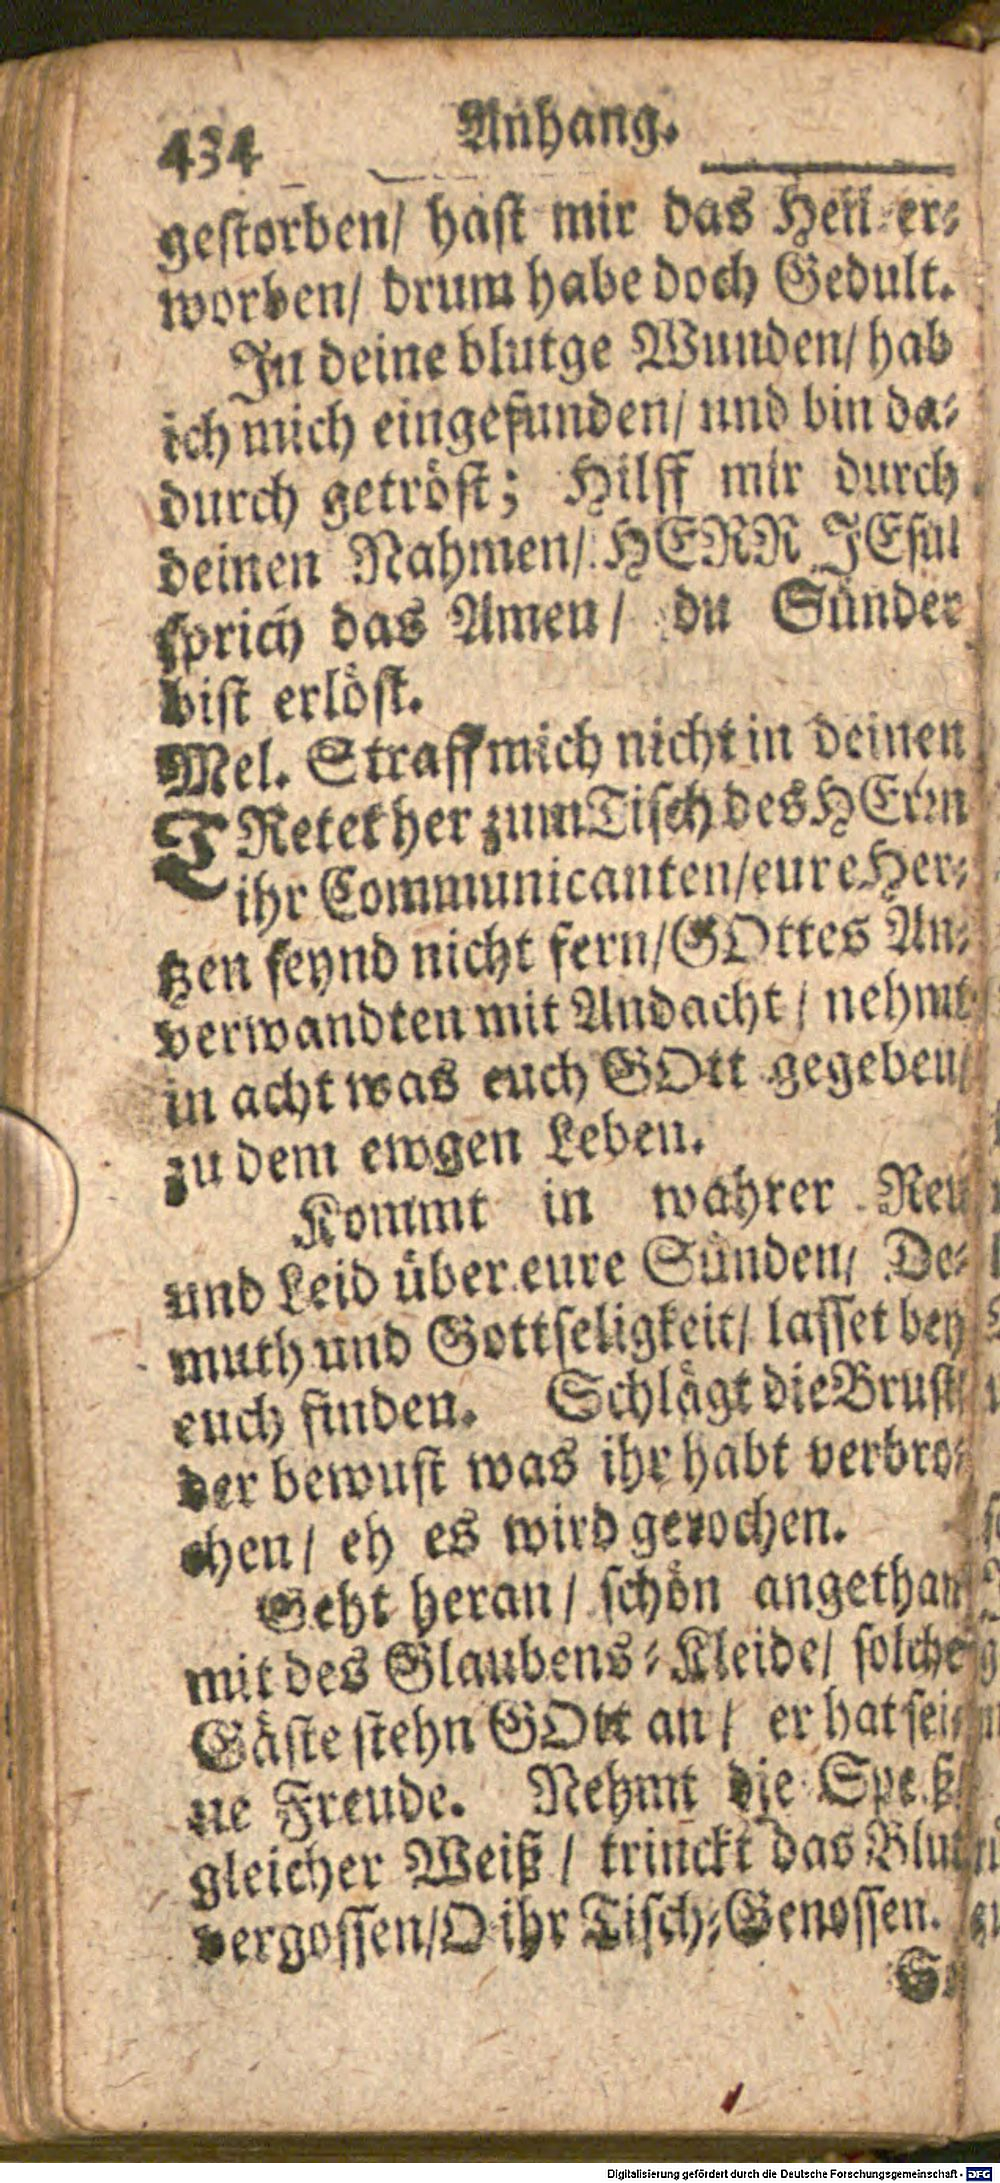 434 Anhang.
gestorben/ hast mir das Heil er-
worben/ drum habe doch Gedult.
In deine blutge Wunden/ hab
ich mich eingefunden/ und bin da-
durch getröst; Hilff mir durch
deinen Nahmen/ HERR JEsu!
sprich das Amen/ du Sünder
bist erlöst.
Mel. Straff mich nicht in deinen
TRetet her zum Tisch des HErrn
ihr Communicanten/ eure Her-
tzen seynd nicht fern/ GOttes An-
verwandten mit Andacht/ nehmt
in acht was euch GOtt gegeben/
zu dem ewgen Leben.
Kommt in wahrer Reu
und Leid über eure Sünden/ De-
muth und Gottseligkeit/ lasset bey
euch finden. Schlägt die Brust/
der bewust was ihr habt verbro-
chen/ eh es wird gerochen.
Geht heran/ schön angethan
mit des Glaubens-Kleide/ solche
Gäste stehn GOtt an/ er hat sei-
ne Freude. Nehmt die
gleicher Weiß/ trinckt das Blut
vergossen/ O ihr Tisch-Genossen.
Digitalisierung gefördert durch die Deutsche Forschungsgemeinschaft - DFG